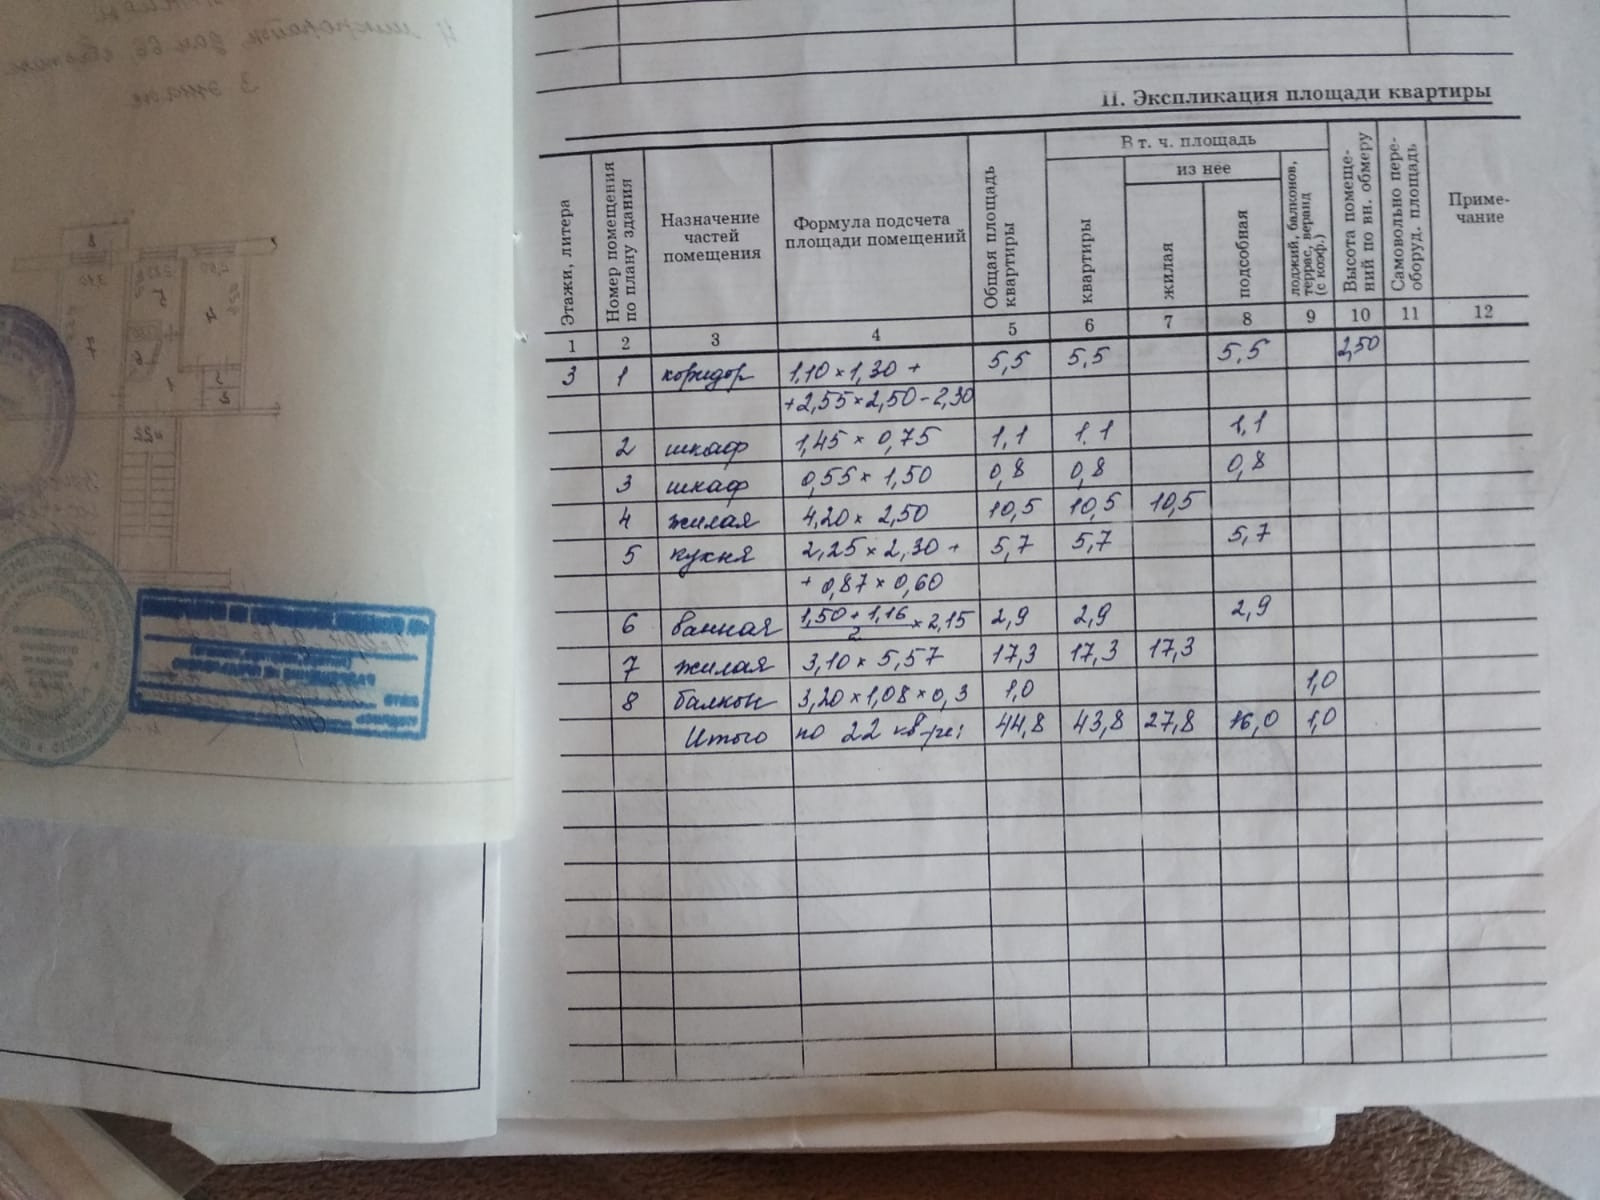 II. Экспликация площади квартиры
Этажи, литера
Номер помещения по плану здания
Назначение частей помещения
Формула подсчета площади помещений
Общая площадь квартиры
В т. ч. площадь
из нее
квартиры
жилая
подсобная
лоджий, балконов, террас, веранд (с коэф.)
Высота помещений по вн. обмеру
Самовольно переоборуд. площадь
Примечание
1 2 3 4 5 6 7 8 9 10 11 12
3 1 коридор 1,10 × 1,30 + 5,5 5,5 5,5 2,50
+2,55 × 2,50 - 2,30
2 шкаф 1,45 × 0,75 1,1 1.1 1,1
3 шкаф 0,55 × 1,50 0,8 0,8 0,8
4 жилая 4,20 × 2,50 10,5 10,5 10,5
5 кухня 2,25 × 2,30 + 5,7 5,7 5,7
+ 0,87 × 0,60
6 ванная 1,50 + 1,16 / 2 × 2,15 2,9 2,9 2,9
7 жилая 3,10 × 5,57 17,3 17,3 17,3
8 балкон 3,20 × 1,08 × 0,3 1,0 1,0
Итого по 22 кв-ре: 44,8 43,8 27,8 16,0 1,0